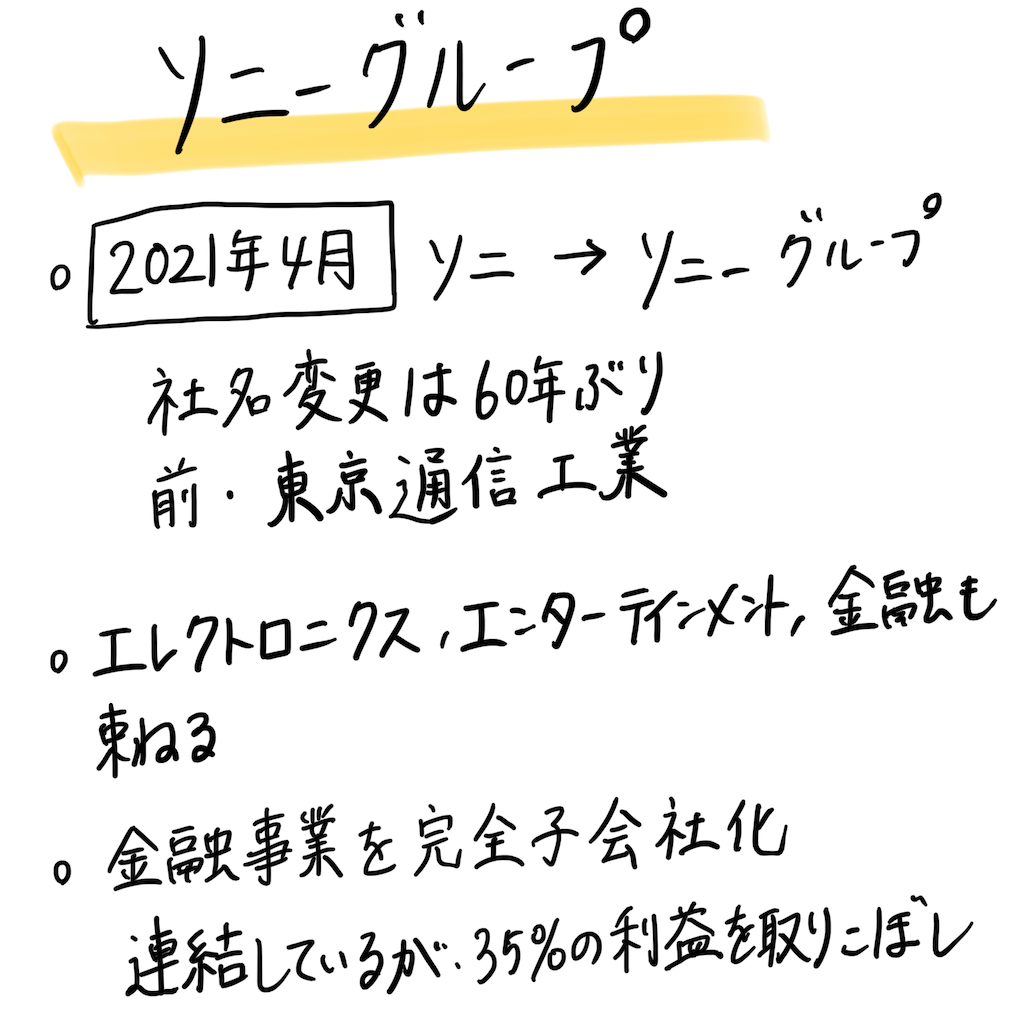 ソニーグループ
○ 2021年4月 ソニ → ソニー グループ
社名変更は60年ぶり
前・東京通信工業
○ エレクトロニクス,エンターティンメント,金融も
束ねる
○ 金融事業を完全子会社化
連結しているが.35%の利益を取りこぼし